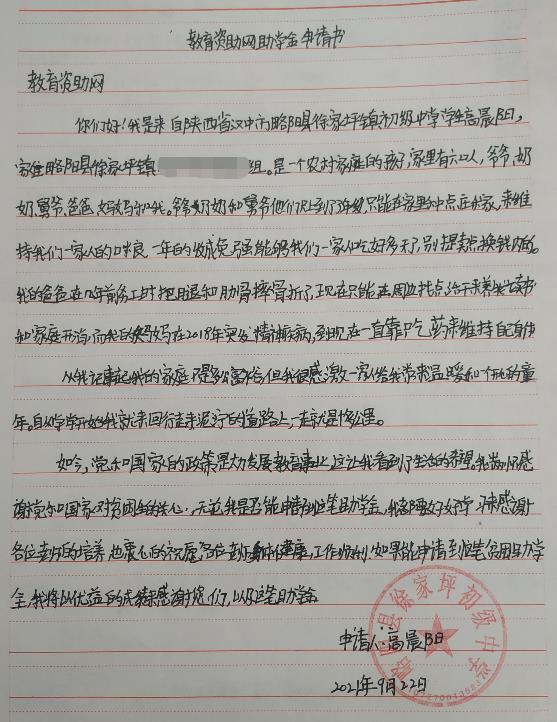 教育资助网助学金申请书
教育资助网
你们好！我是来自陕西省汉中市略阳县徐家坪镇初级中学学生高晨阳，
家住略阳县徐家坪镇 组。是一个农村家庭的孩子，家里有六口人，爷爷、奶
奶、舅爷、爸爸、妈妈和我。爷爷奶奶和舅爷他们已上到了年级，只能在家里种点庄农，来维
持我们一家人的口粮，一年的收成勉强能够我们一家人吃好多天了，别提卖点换钱
我的爸爸在几年前务工时把腿和肋骨摔骨折了，现在只能在周边找点活干来养我读书
和家庭开消，而我的妈妈在2018年突发精神疾病，到现在一直靠吃药来维持自身
从我记事起我的家庭不是多么富裕，但我很感激一家人给我带来温暖和 童
年。自从学开始我就来回行走来泥泞的道路上，走就是 公里。
如今，党和国家的政策是大力发展教育事业，这让我看到了生活的希望。我 感
谢党和国家对贫困生的关心，无论我是否能申请到这笔助学金，我都要好好学 感谢
各位老师的培养，也衷心的祝愿各位老师身体健康，工作顺利，如果能申请到这笔贫困助学
金，我将以优益的成绩来感谢您们，以及这笔助学金
申请人：高晨阳
2021年9月22日
略阳县徐家坪初级中学